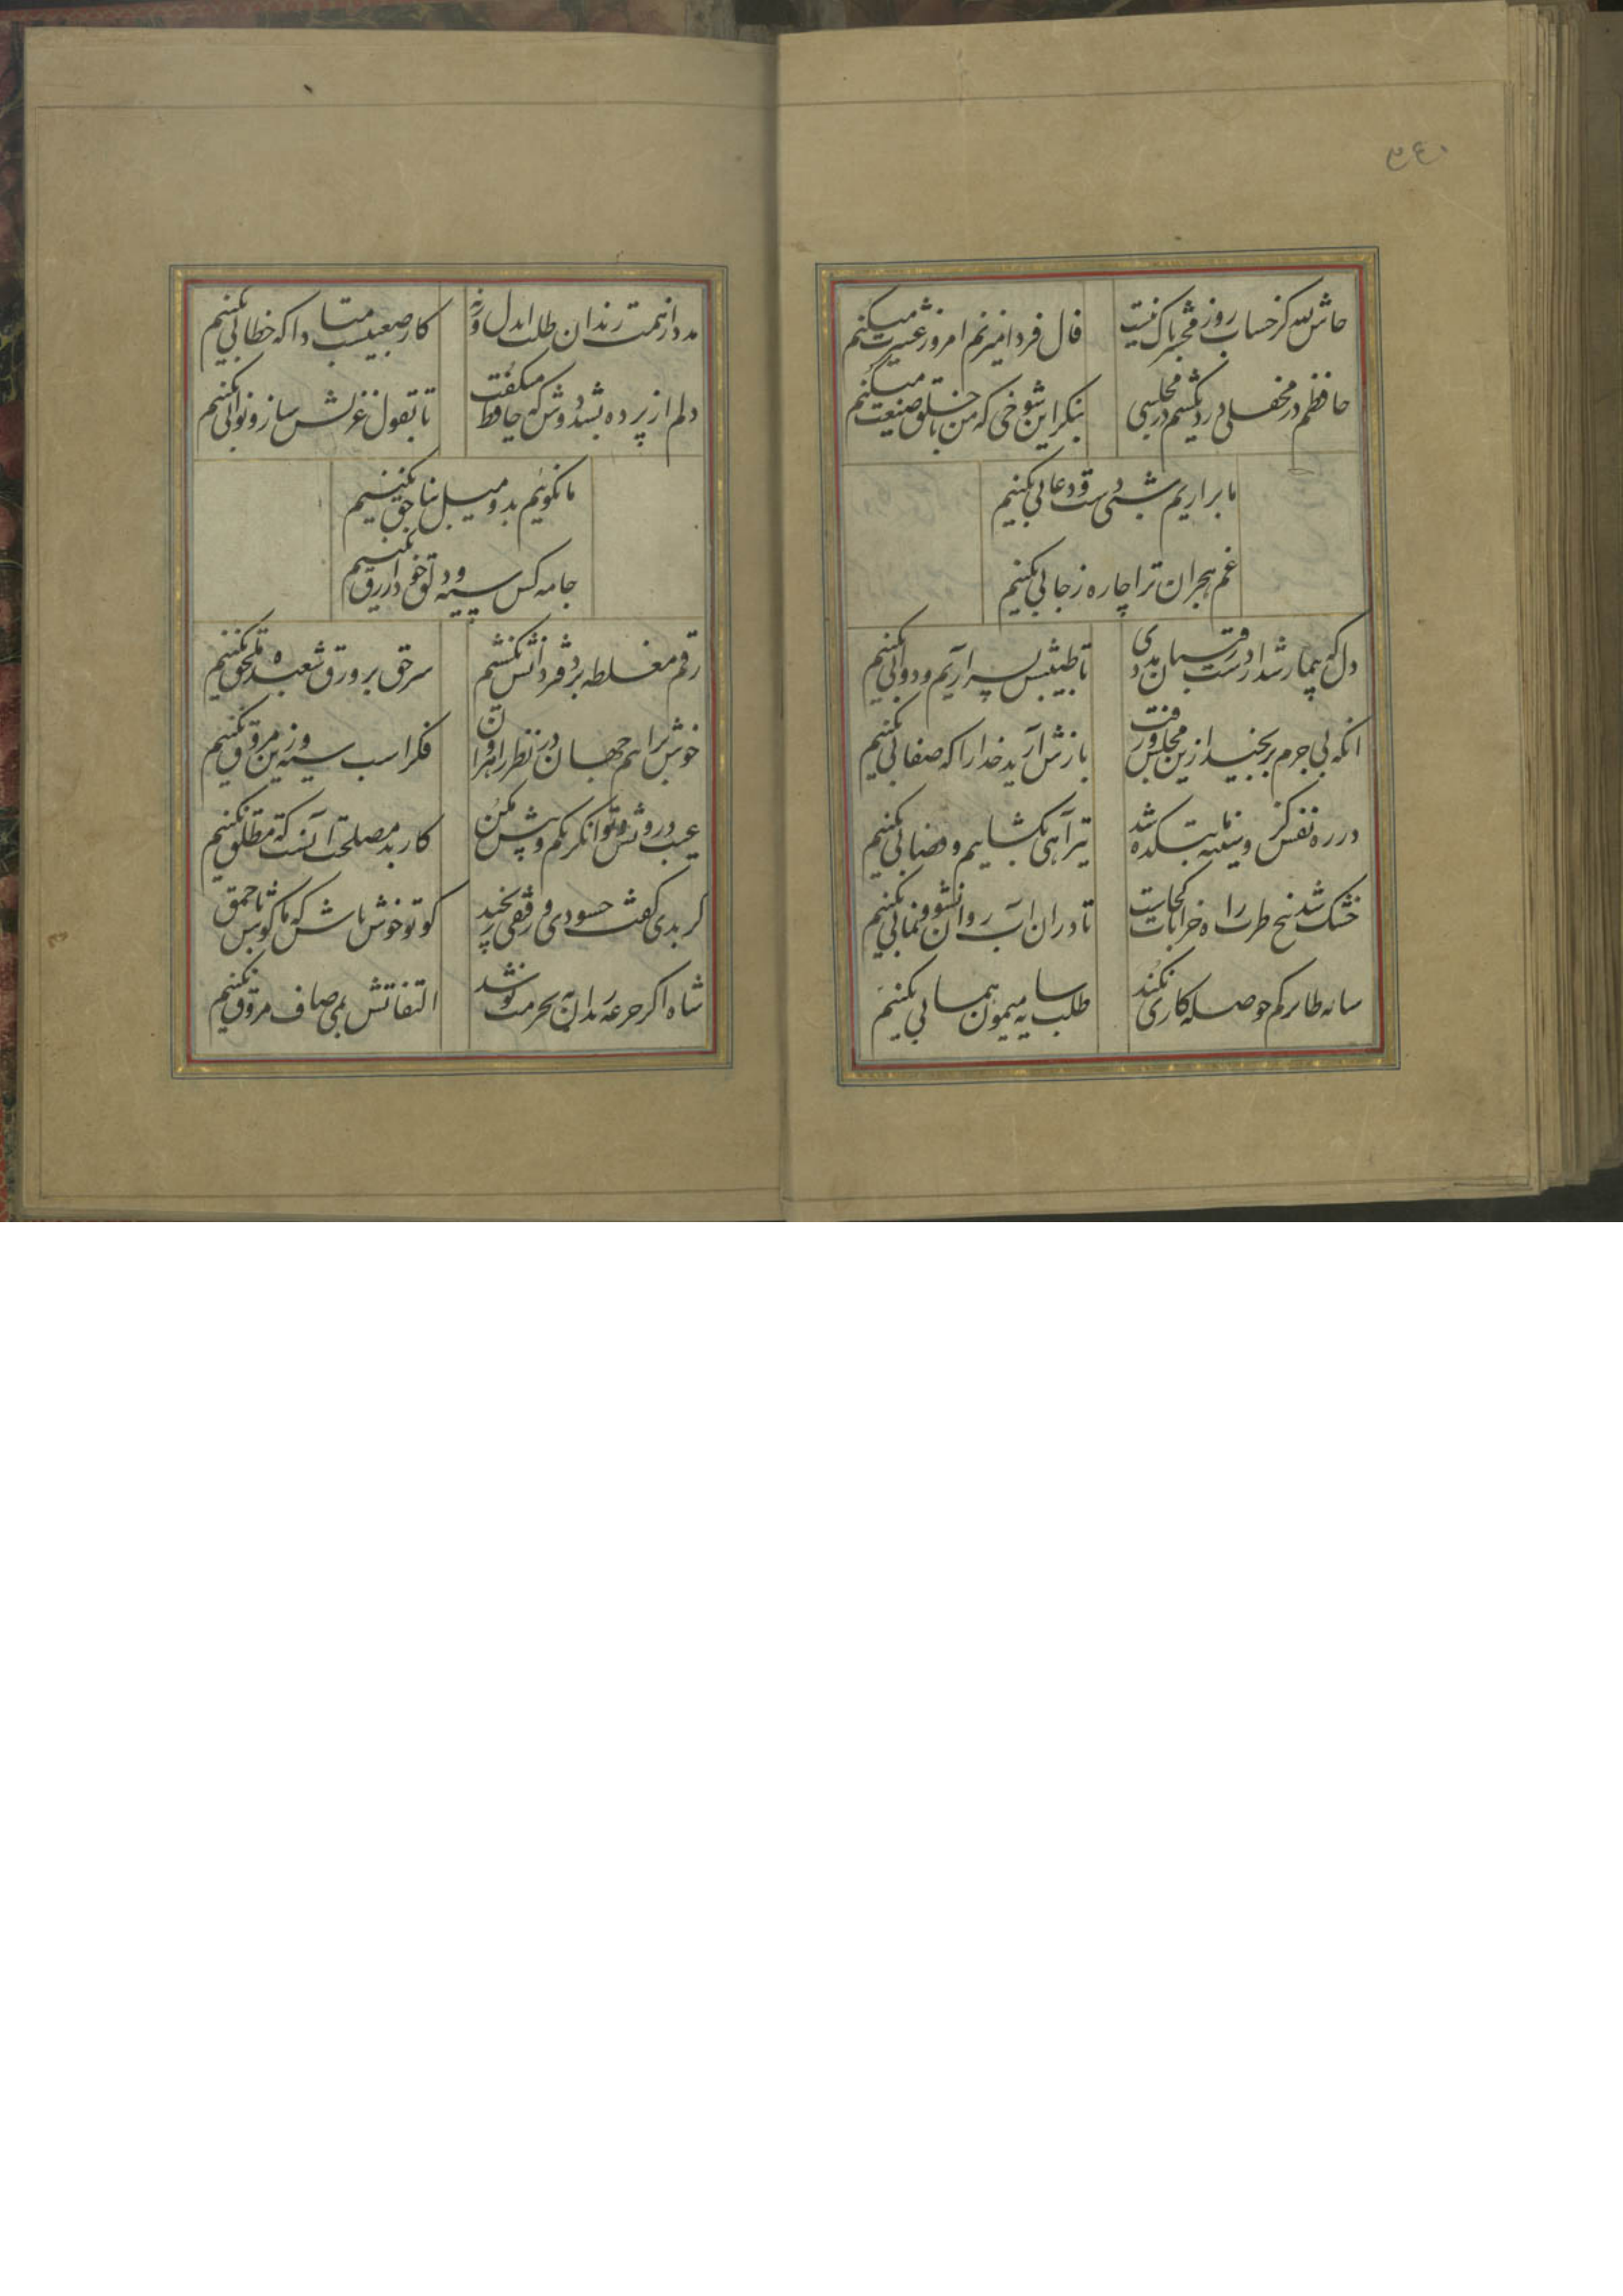 ٣٤٠
حاش لله کز حساب روز محشر باک نیست
فال فردا میزنم امروز عشرت میکنم
حافظم در محفلی دردی کشم در مجلسی
بنکر این شوخی که من با خلق صنعت میکنم
ما براریم شبی دست و دعایی بکنیم
غم هجران ترا چاره ز جایی بکنیم
دل که بیمار شد از دست رفیقان مددی
تا طبیبش بسر اریم و دوایی بکنیم
انکه بی جرم برنجید ازین مجلس و رفت
بازش ارید خدا را که صفایی بکنیم
در ره نفس کز و سینه ما بتکده شد
تیر آهی بکشاییم و فضایی بکنیم
خشک شد بیخ طرب راه خرابات کجاست
تا دران اب روان نشو و نمایی بکنیم
سایه طایر کم حوصله کاری نکند
طلب سایه میمون همایی بکنیم
مدد از همت رندان طلب ایدل ورنه
کار صعبیست مبادا که خطایی بکنیم
دلم از پرده بشد دوش که حافظ میکفت
تا بقول غزلش ساز و نوایی بکنیم
ما نکوییم بد و میل بناحق نکنیم
جامه کس سیه و دلق خود ازرق نکنیم
رقم مغلطه بر دفتر دانش نکشیم
سر حق بر ورق شعبده ملحق نکنیم
خوش برانیم جهان در نظر راهروان
فکر اسب سیه و زین مغرق نکنیم
عیب درویش و توانکر بکم و بیش مکن
کار بد مصلحت آنست که مطلق نکنیم
کر بدی کفت حسودی و رفیقی رنجید
کو تو خوش باش که ما کوش باحمق نکنیم
شاه اکر جرعه رندان نه بحرمت نوشد
التفاتش بمی صاف مروق نکنیم